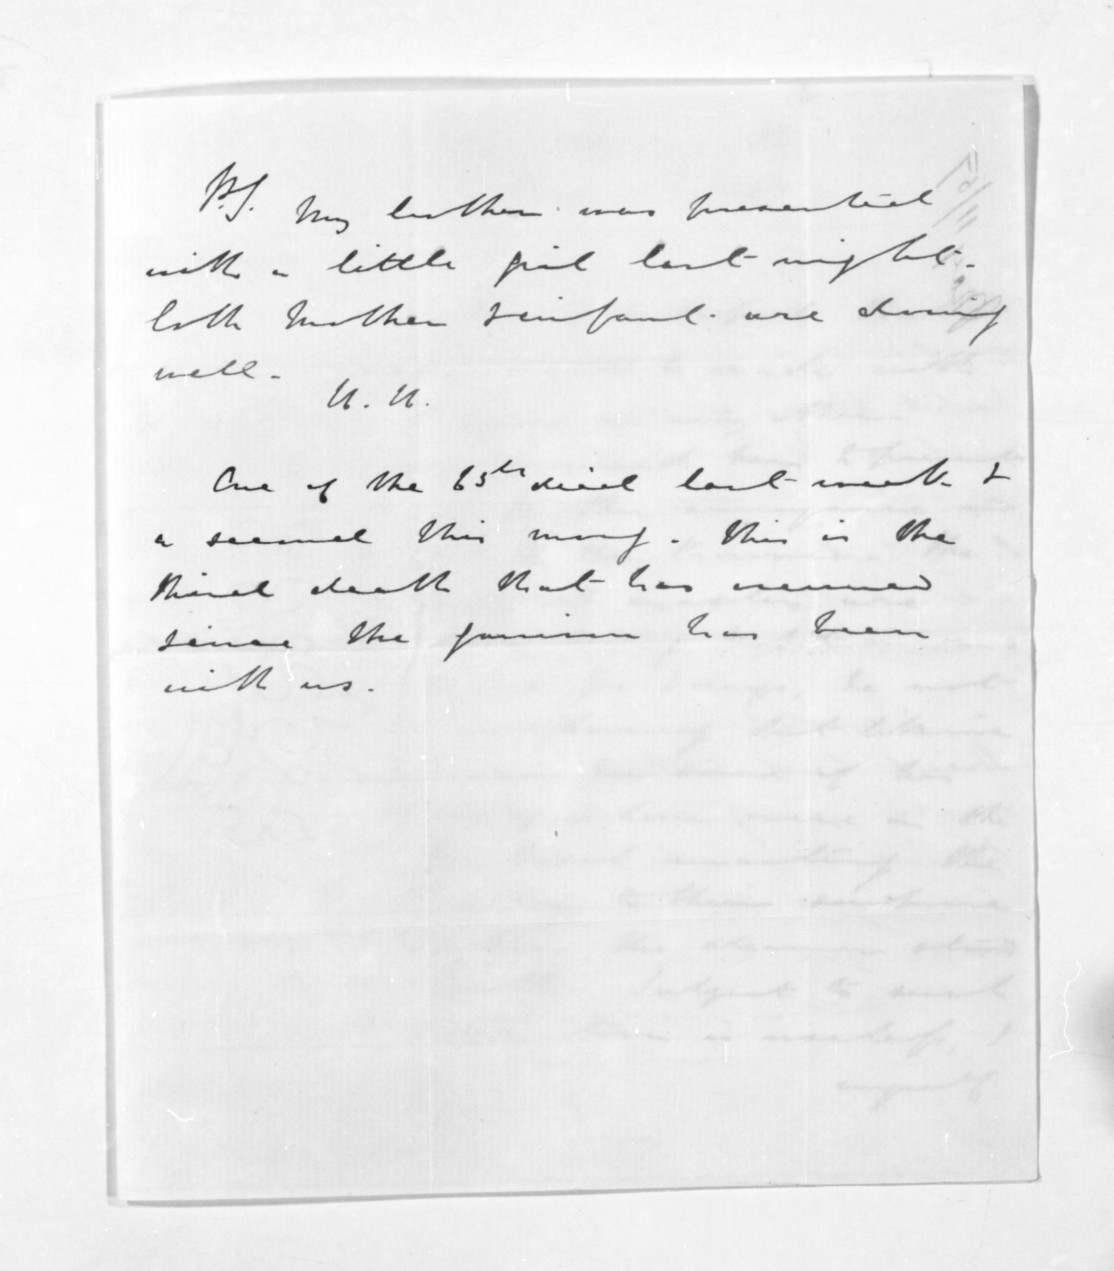 P.S. My brother was presented
with a little girl last night.
both Mother & infant are doing
well -
H. H.
One of the 65th died last week &
a second this morng. This is the
third death that has occurred
since the garrison has been
with us.